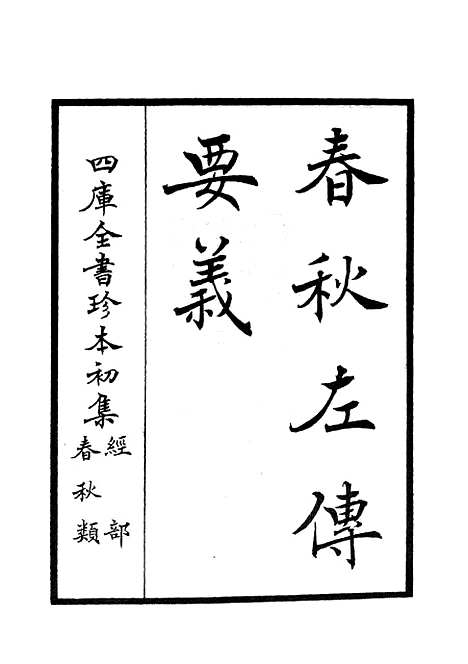 春秋左傳
要義
四庫全書珍本初集
經部
春秋類